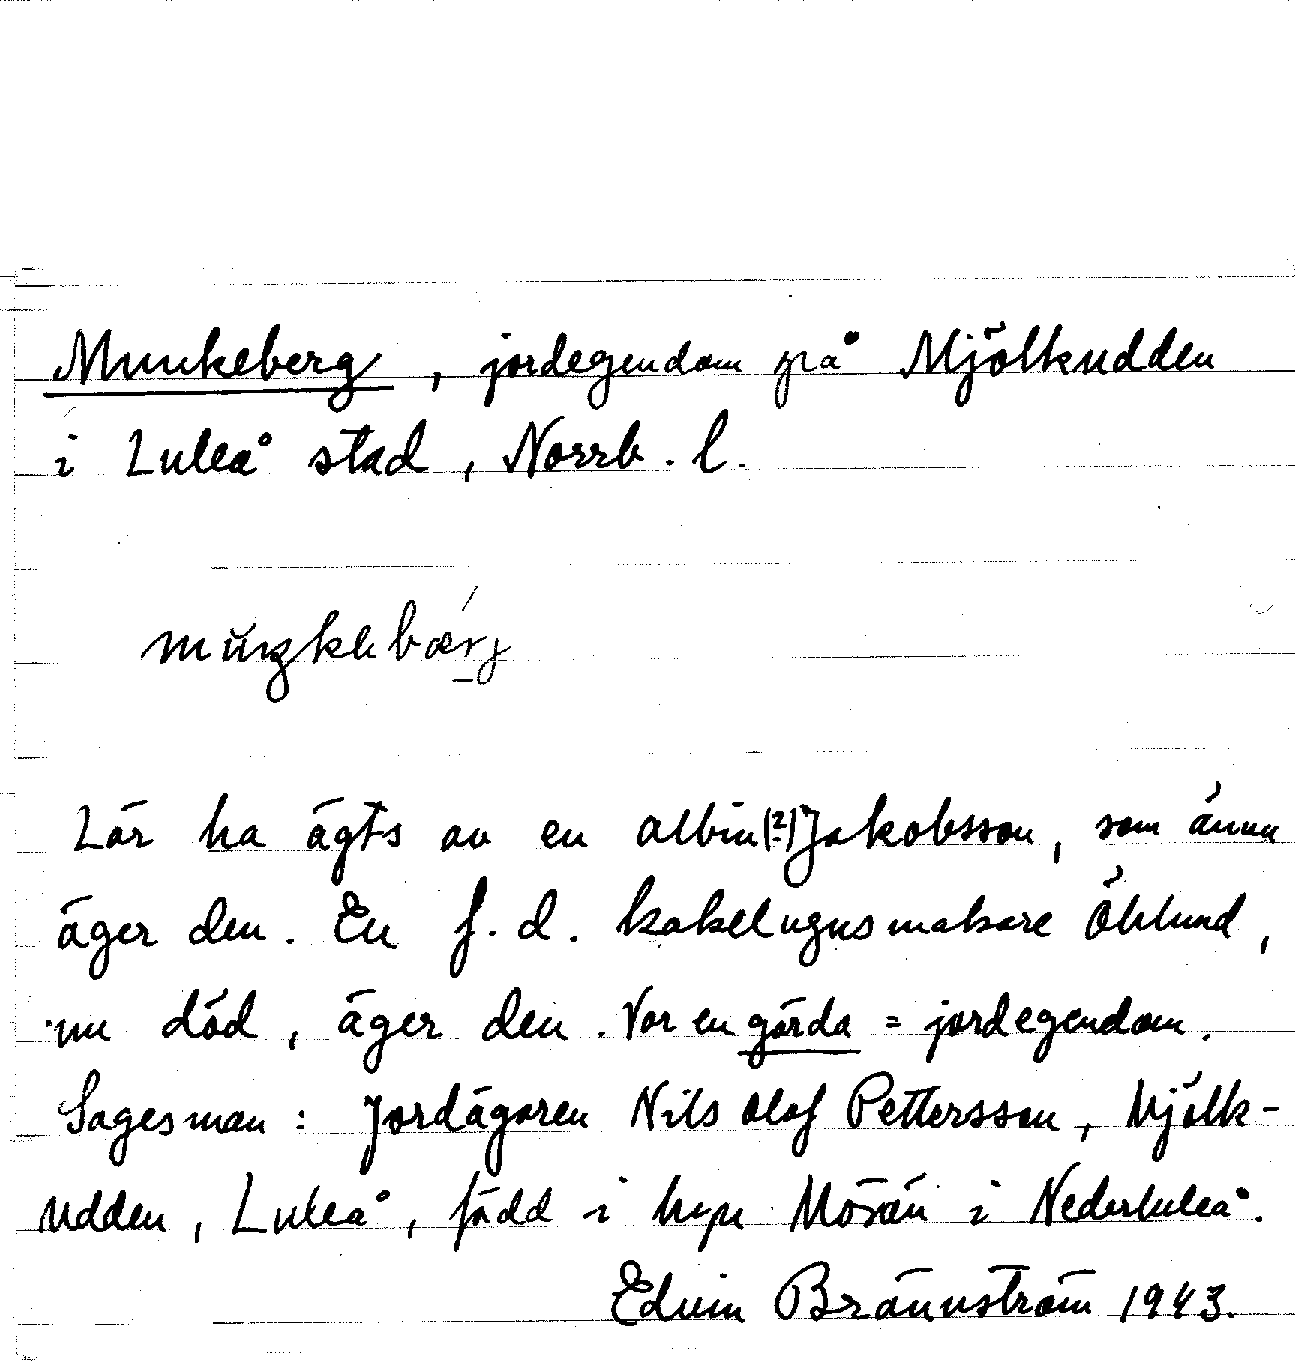 Munkeberg, jordegendom på Mjölkudden
i Luleå stad, Norrb. l.
Lär ha ägts av en Albin(?) Jakobsson, som ännu
äger den. En f. d. kakelugnsmakare Öhlund,
nu död, äger den. Var en gärda = jordegendom.
Sagesman: Jordägaren Nils Olof Pettersson, Mjölk-
udden, Luleå, född i byn Mörån i Nederluleå.
Edvin Brännström 1943.